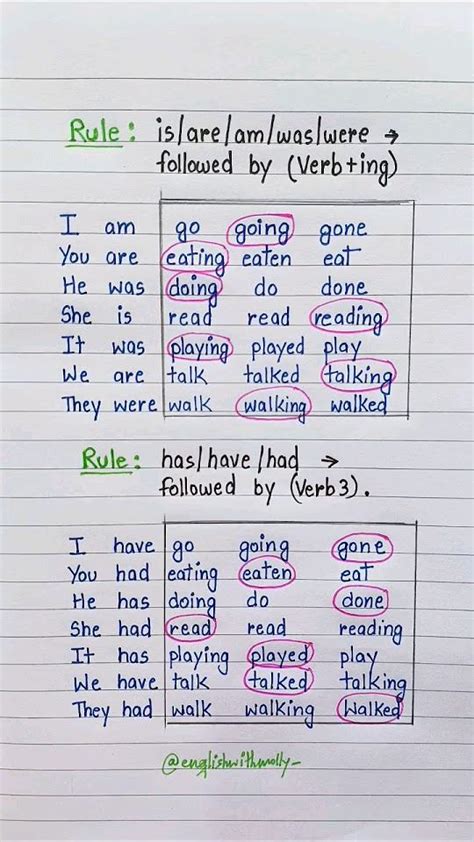 Rule: is/are/am/was/were →
followed by (Verb+ing)
I am go going gone
You are eating eaten eat
He was doing do done
She is read read reading
It was playing played play
We are talk talked talking
They were walk walking walked
Rule: has/have/had →
followed by (Verb3).
I have go going gone
You had eating eaten eat
He has doing do done
She had read read reading
It has playing played play
We have talk talked talking
They had walk walking walked
@englishwithmolly_